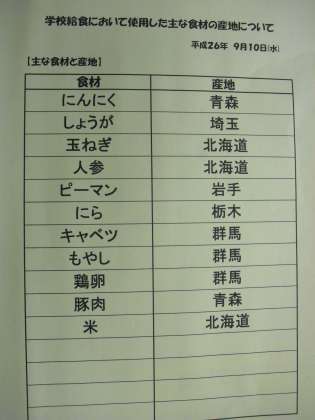 学校給食において使用した主な食材の産地について
平成26年 9月10日(水)
【主な食材と産地】
食材 産地
にんにく 青森
しょうが 埼玉
玉ねぎ 北海道
人参 北海道
ピーマン 岩手
にら 栃木
キャベツ 群馬
もやし 群馬
鶏卵 群馬
豚肉 青森
米 北海道